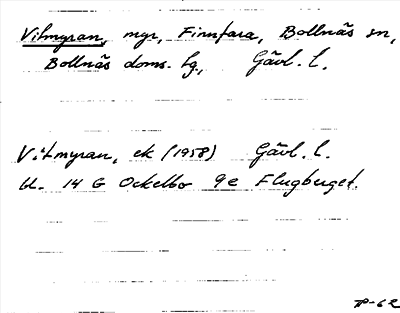 Vitmyran, myr, Finnfara, Bollnäs sn,
Bollnäs doms. lg, Gävl. l.
Vitmyran, ek (1958) Gävl. l.
bl. 14 G Ockelbo 9e Flugberget.
TP-62